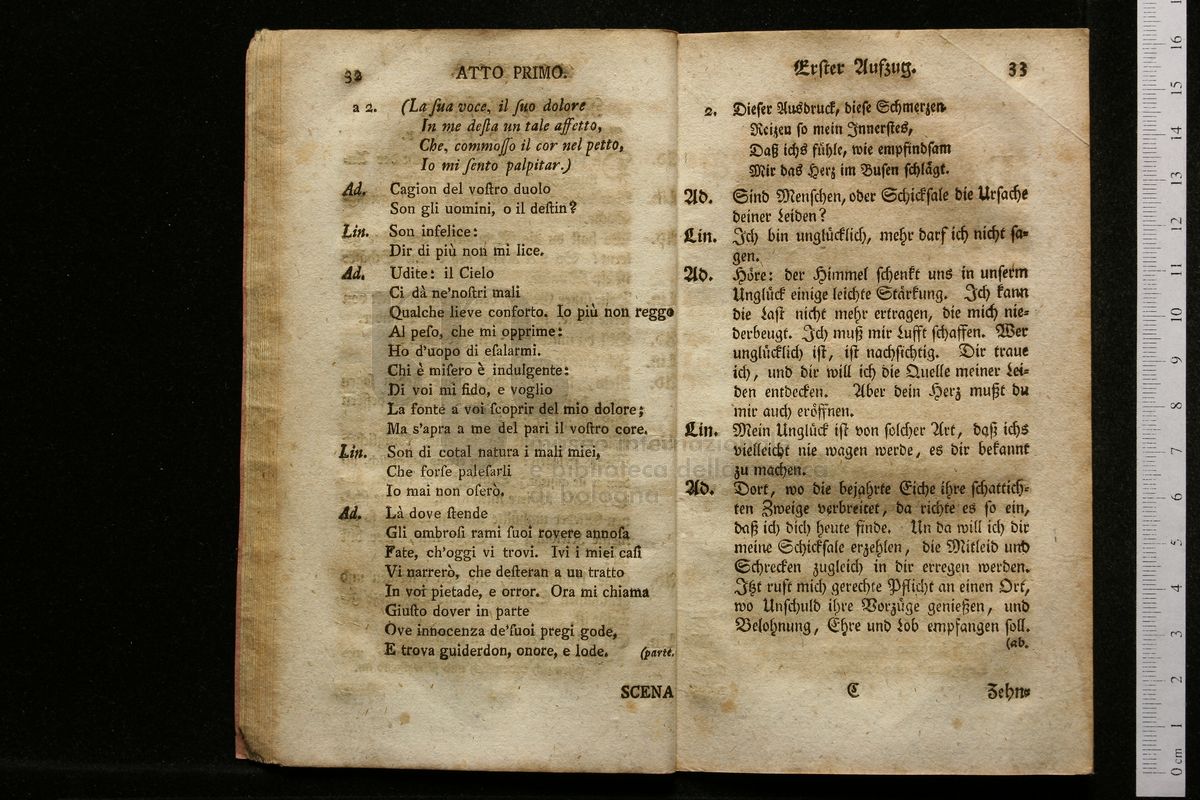 32 ATTO PRIMO.
a 2. (La ſua voce, il ſuo dolore
In me deſta un tale affetto,
Che, commoſſo il cor nel petto,
Io mi ſento palpitar.)
Ad. Cagion del voſtro duolo
Son gli uomini, o il deſtin?
Lin. Son infelice:
Dir di più non mi lice.
Ad. Udite: il Cielo
Ci dà ne'noſtri mali
Qualche lieve conforto. Io più non reggo
Al peſo, che mi opprime:
Ho d'uopo di eſalarmi.
Chi è miſero è indulgente:
Di voi mi fido, e voglio
La fonte a voi ſcoprir del mio dolore;
Ma s'apra a me del pari il voſtro core.
Lin. Son di cotal natura i mali miei,
Che forſe paleſarli
Io mai non oſerò.
Ad. Là dove ſtende
Gli ombroſi rami ſuoi rovere annoſa
Fate, ch'oggi vi trovi. Ivi i miei caſi
Vi narrerò, che deſteran a un tratto
In voi pietade, e orror. Ora mi chiama
Giuſto dover in parte
Ove innocenza de'ſuoi pregi gode,
E trova guiderdon, onore, e lode. (parte.
SCENA
Erſter Aufzug. 33
2. Dieſer Ausdruck, dieſe Schmerzen
Reizen ſo mein Innerſtes,
Daß ichs fühle, wie empfindſam
Mir das Herz im Buſen ſchlägt.
Ad. Sind Menſchen, oder Schickſale die Urſache
deiner Leiden?
Lin. Ich bin unglücklich, mehr darf ich nicht ſa-
gen.
Ad. Höre: der Himmel ſchenkt uns in unſerm
Unglück einige leichte Stärkung. Ich kann
die Laſt nicht mehr ertragen, die mich nie-
derbeugt. Ich muß mir Lufft ſchaffen. Wer
unglücklich iſt, iſt nachſichtig. Dir traue
ich, und dir will ich die Quelle meiner Lei-
den entdecken. Aber dein Herz mußt du
mir auch eröffnen.
Lin. Mein Unglück iſt von ſolcher Art, daß ichs
vielleicht nie wagen werde, es dir bekannt
zu machen.
Ad. Dort, wo die bejahrte Eiche ihre ſchattich-
ten Zweige verbreitet, da richte es ſo ein,
daß ich dich heute finde. Un da will ich dir
meine Schickſale erzehlen, die Mitleid und
Schrecken zugleich in dir erregen werden.
Itzt ruft mich gerechte Pflicht an einen Ort,
wo Unſchuld ihre Vorzüge genießen, und
Belohnung, Ehre und Lob empfangen ſoll.
(ab.
C Zehn-
museo internazionale
e biblioteca della musica
di bologna
0 cm 1 2 3 4 5 6 7 8 9 10 11 12 13 14 15 16